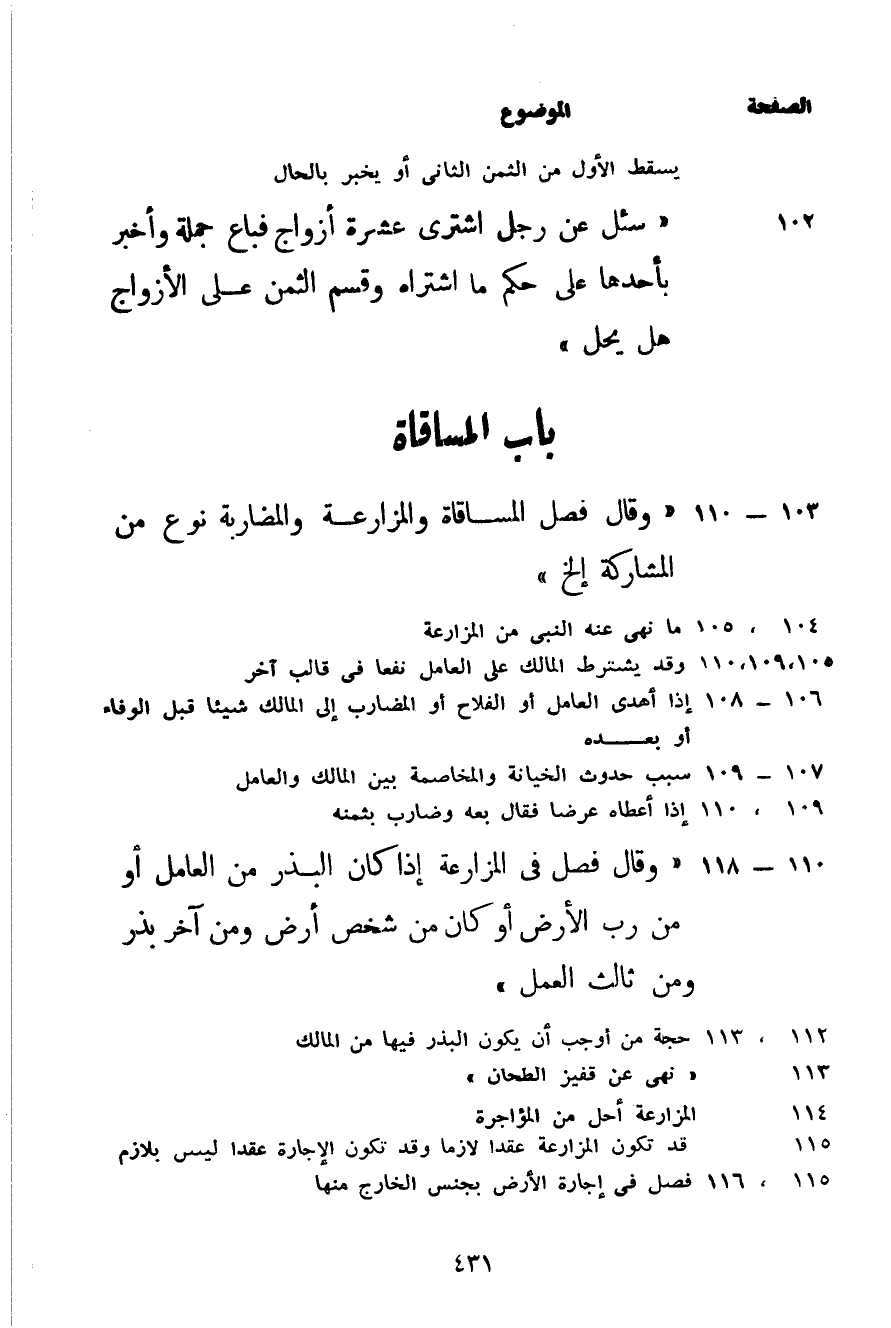 الصفحة الموضوع
يسقط الأول من الثمن الثانى أو يخبر بالحال
١٠٢ « سئل عن رجل اشترى عشرة أزواج فباع جملة وأخبر
بأحدها على حكم ما اشتراه وقسم الثمن عـلى الأزواج
هل يحل »
باب المساقاة
١٠٣ – ١١٠ « وقال فصل المساقاة والمزارعة والمضاربة نوع من
المشاركة إلخ »
١٠٤ ، ١٠٥ ما نهى عنه النبى من المزارعة
١٠٥،١٠٩،١١٠ وقد يشترط المالك على العامل نفعا فى قالب آخر
١٠٦ – ١٠٨ إذا أهدى العامل أو الفلاح أو المضارب إلى المالك شيئا قبل الوفاء
أو بعـــده
١٠٧ – ١٠٩ سبب حدوث الخيانة والمخاصمة بين المالك والعامل
١٠٩ ، ١١٠ إذا أعطاه عرضا فقال بعه وضارب بثمنه
١١٠ – ١١٨ « وقال فصل فى المزارعة إذا كان البـذر من العامل أو
من رب الأرض أو كان من شخص أرض ومن آخر بذر
ومن ثالث العمل »
١١٢ ، ١١٣ حجة من أوجب أن يكون البذر فيها من المالك
١١٣ « نهى عن قفيز الطحان »
١١٤ المزارعة أحل من المؤاجرة
١١٥ قد تكون المزارعة عقدا لازما وقد تكون الإجارة عقدا ليس بلازم
١١٥ ، ١١٦ فصل فى إجارة الأرض بجنس الخارج منها
٤٣١